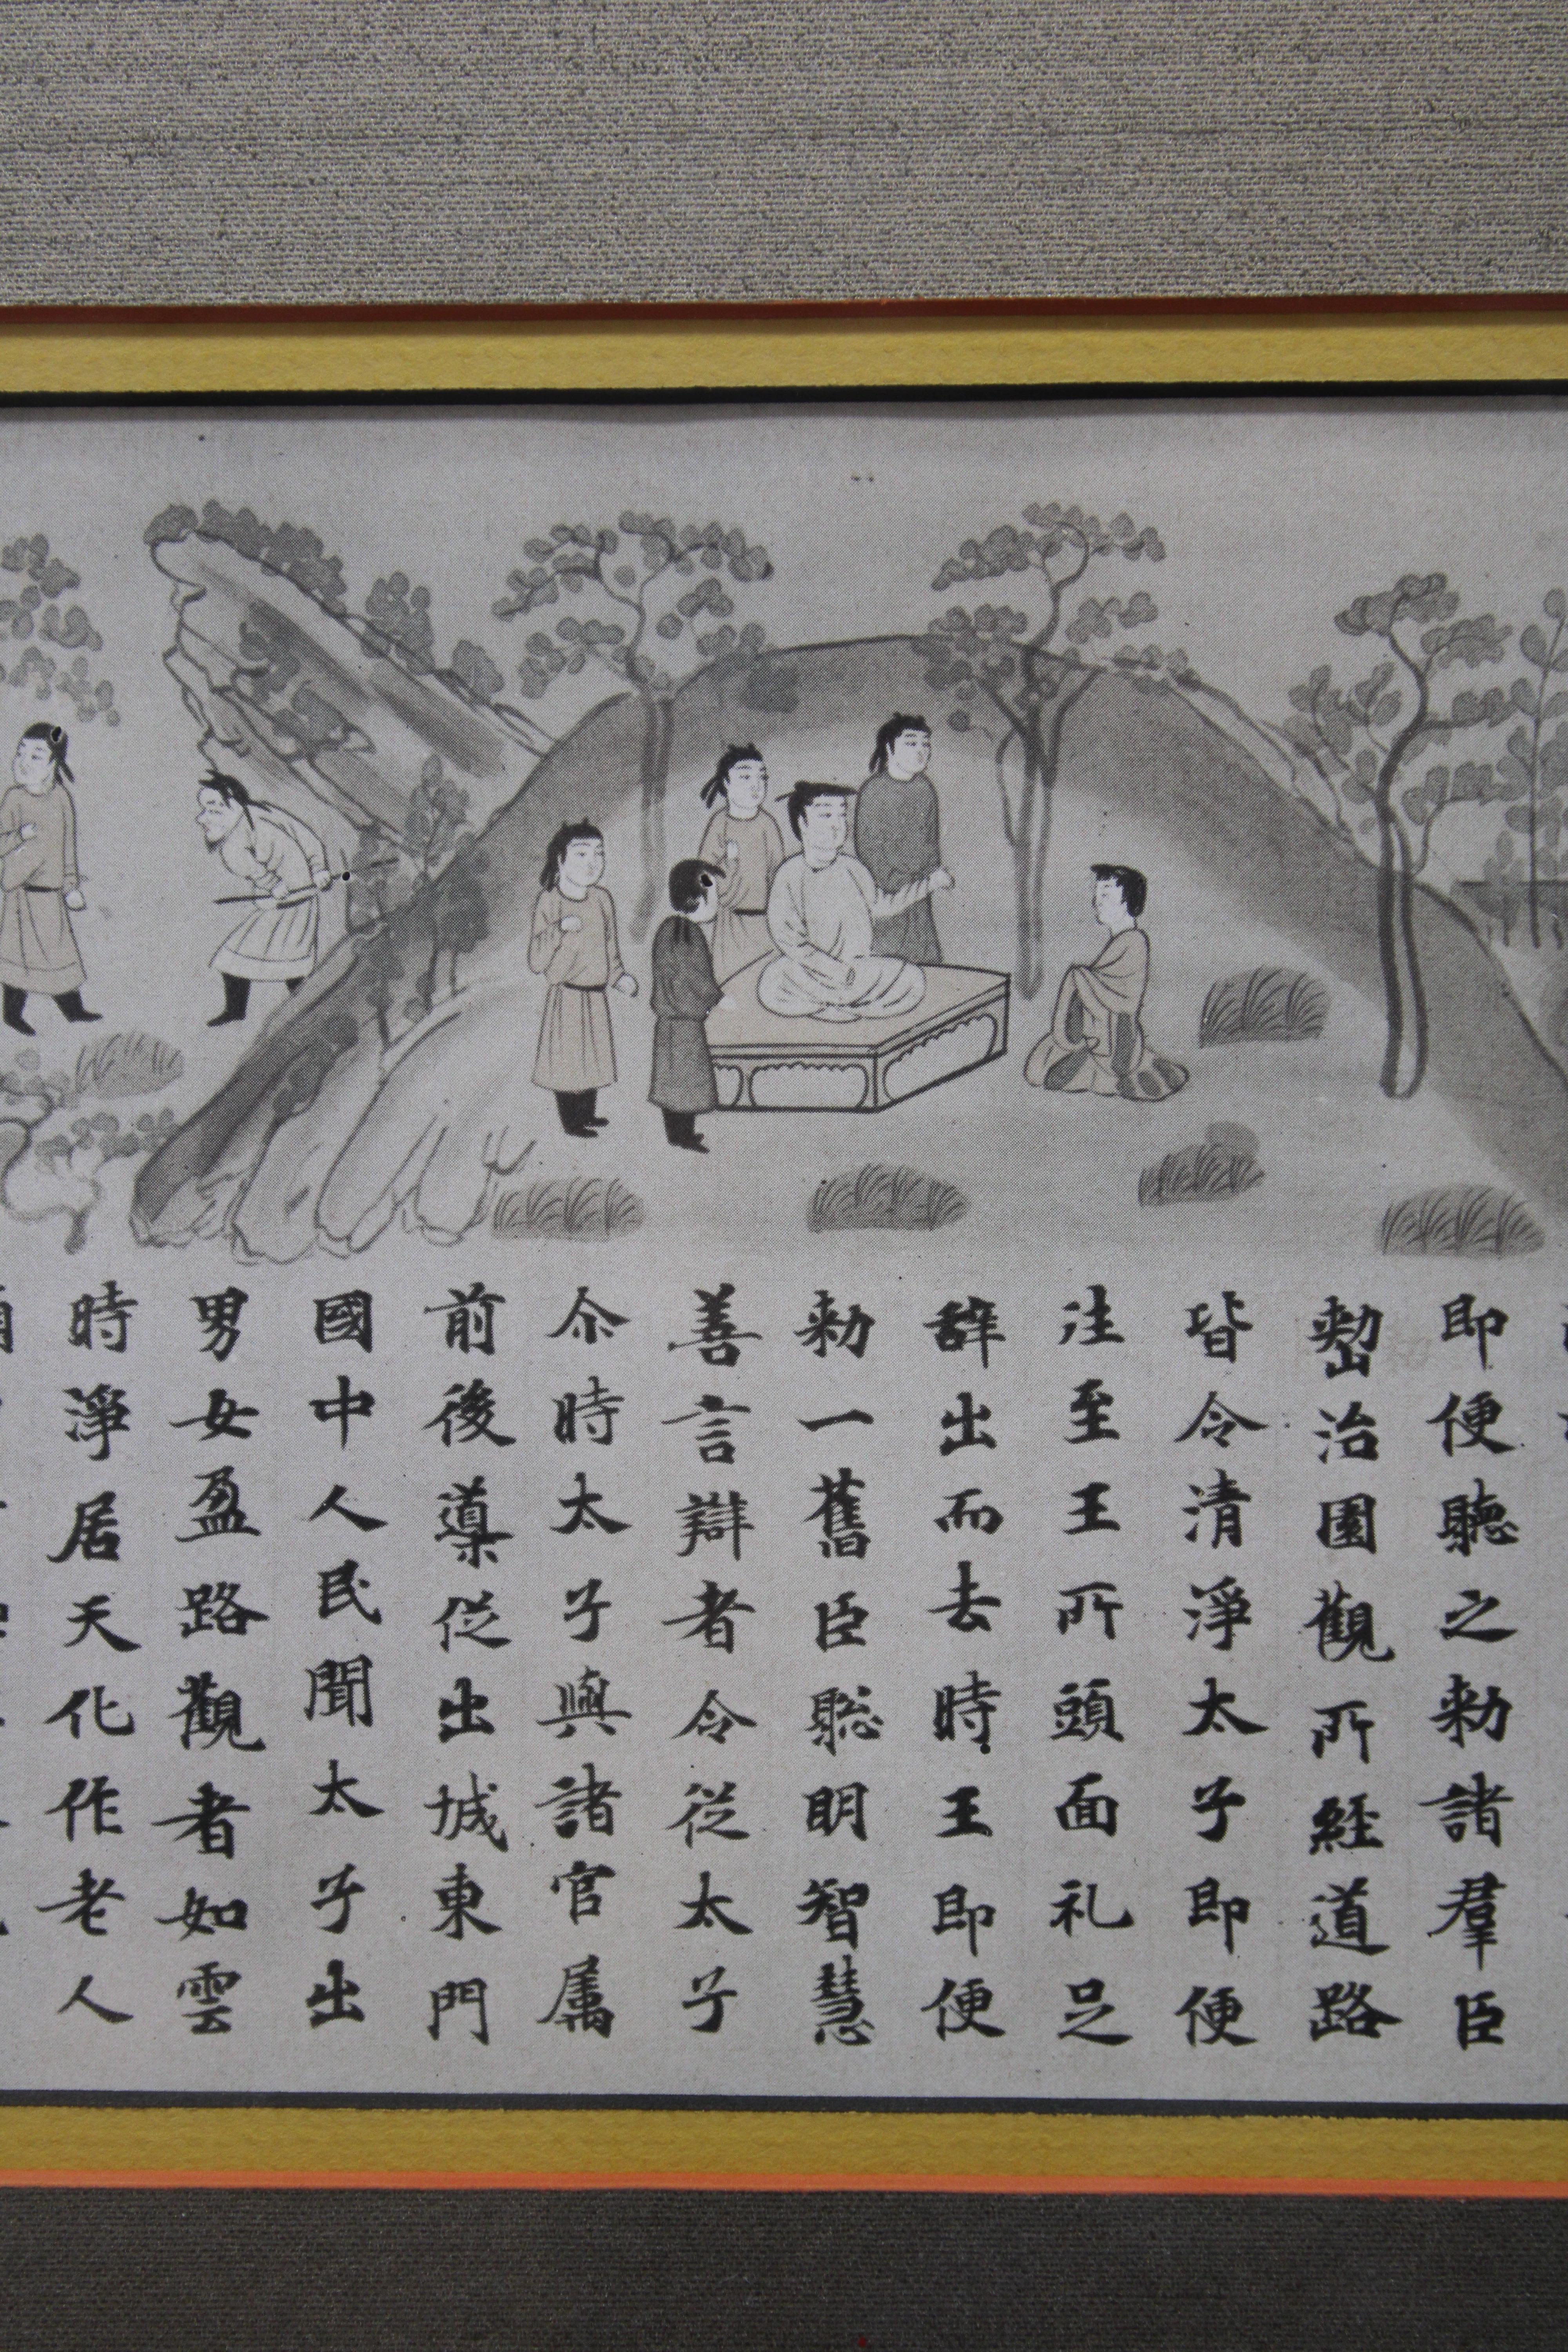 即便聽之勅諸羣臣
整治園觀所経道路
皆令清淨太子即便
往至王所頭面礼足
辞出而去時王即便
勅一舊臣聡明智慧
善言辯者令従太子
尒時太子與諸官属
前後導従出城東門
國中人民聞太子出
男女盈路觀者如雲
時淨居天化作老人